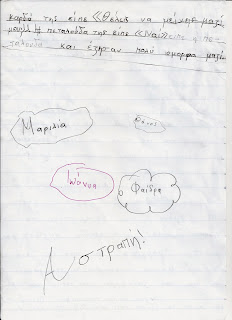 καρδιά της είπε «Θέλεις να μείνεις μαζί
μου;» Η πεταλούδα της είπε «Ναι!» είπε η πε-
ταλούδα και έζησαν πολύ όμορφα μαζί
Μαριλία
Ιωάννα
Φαίδρα
Αστραπή!